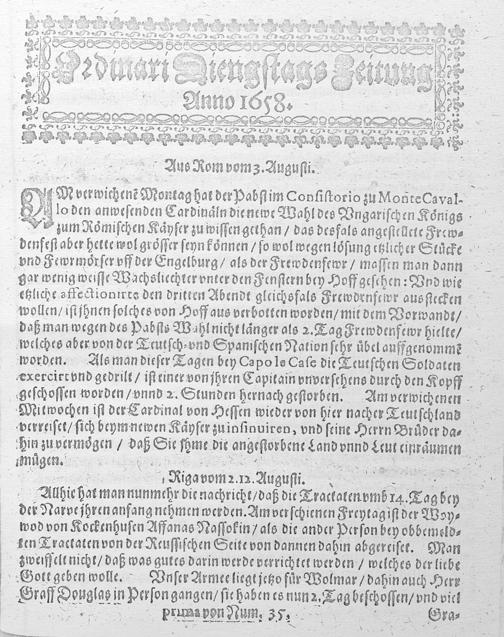 Ordinari Diengstags Zeitung
Anno 1658.
Aus Rom vom 3. Augusti.
AM verwichenē Montag hat der Pabst im Consistorio zu Monte Caval-
lo den anwesenden Cardinäln die newe Wahl des Vngarischen Königs
zum Römischen Käyser zu wissen gethan / das desfals angestellete Frew-
denfest aber hette wol grösser seyn können / so wol wegen lösung etzlicher Stücke
vnd Fewrmörser vff der Engelburg / als der Frewdenfewr / massen man dann
gar wenig weisse Wachsliechter vnter den Fenstern bey Hoff gesehen: Vnd wie
etzliche affectionirte den dritten Abendt gleichsfals Frewdenfewr ausstecken
wollen / ist jhnen solches von Hoff aus verbotten worden / mit dem Vorwandt /
daß man wegen des Pabsts Wahl nicht länger als 2. Tag Frewdenfewr hielte /
welches aber von der Teutsch- vnd Spanischen Nation sehr übel auffgenommē
worden. Als man dieser Tagen bey Capo le Case die Teutschen Soldaten
exercirt vnd gedrilt / ist einer von jhren Capitain vnversehens durch den Kopff
geschossen worden / vnnd 2. Stunden hernach gestorben. Am verwichenen
Mitwochen ist der Cardinal von Hessen wieder von hier nacher Teutschland
verreiset / sich beym newen Käyser zu insinuiren, vnd seine Herrn Brüder da-
hin zu vermögen / daß Sie jhme die angestorbene Land vnnd Leut einräumen
mügen.
Riga vom 2. 12. Augusti.
Allhie hat man nunmehr die nachricht / daß die Tractaten vmb 14. Tag bey
der Narve jhren anfang nehmen werden. Am verschienen Freytag ist der Woy-
wod von Kockenhusen Affanas Nassokin / als die ander Person bey obbemeld-
ten Tractaten von der Reussischen Seite von dannen dahin abgereiset. Man
zweiffelt nicht / daß was gutes darin werde verrichtet werden / welches der liebe
Gott geben wolle. Vnser Armee liegt jetzo für Wolmar / dahin auch Herr
Graff Douglas in Person gangen / sie haben es nun 2. Tag beschossen / vnd viel
prima von Num. 35. Gra-